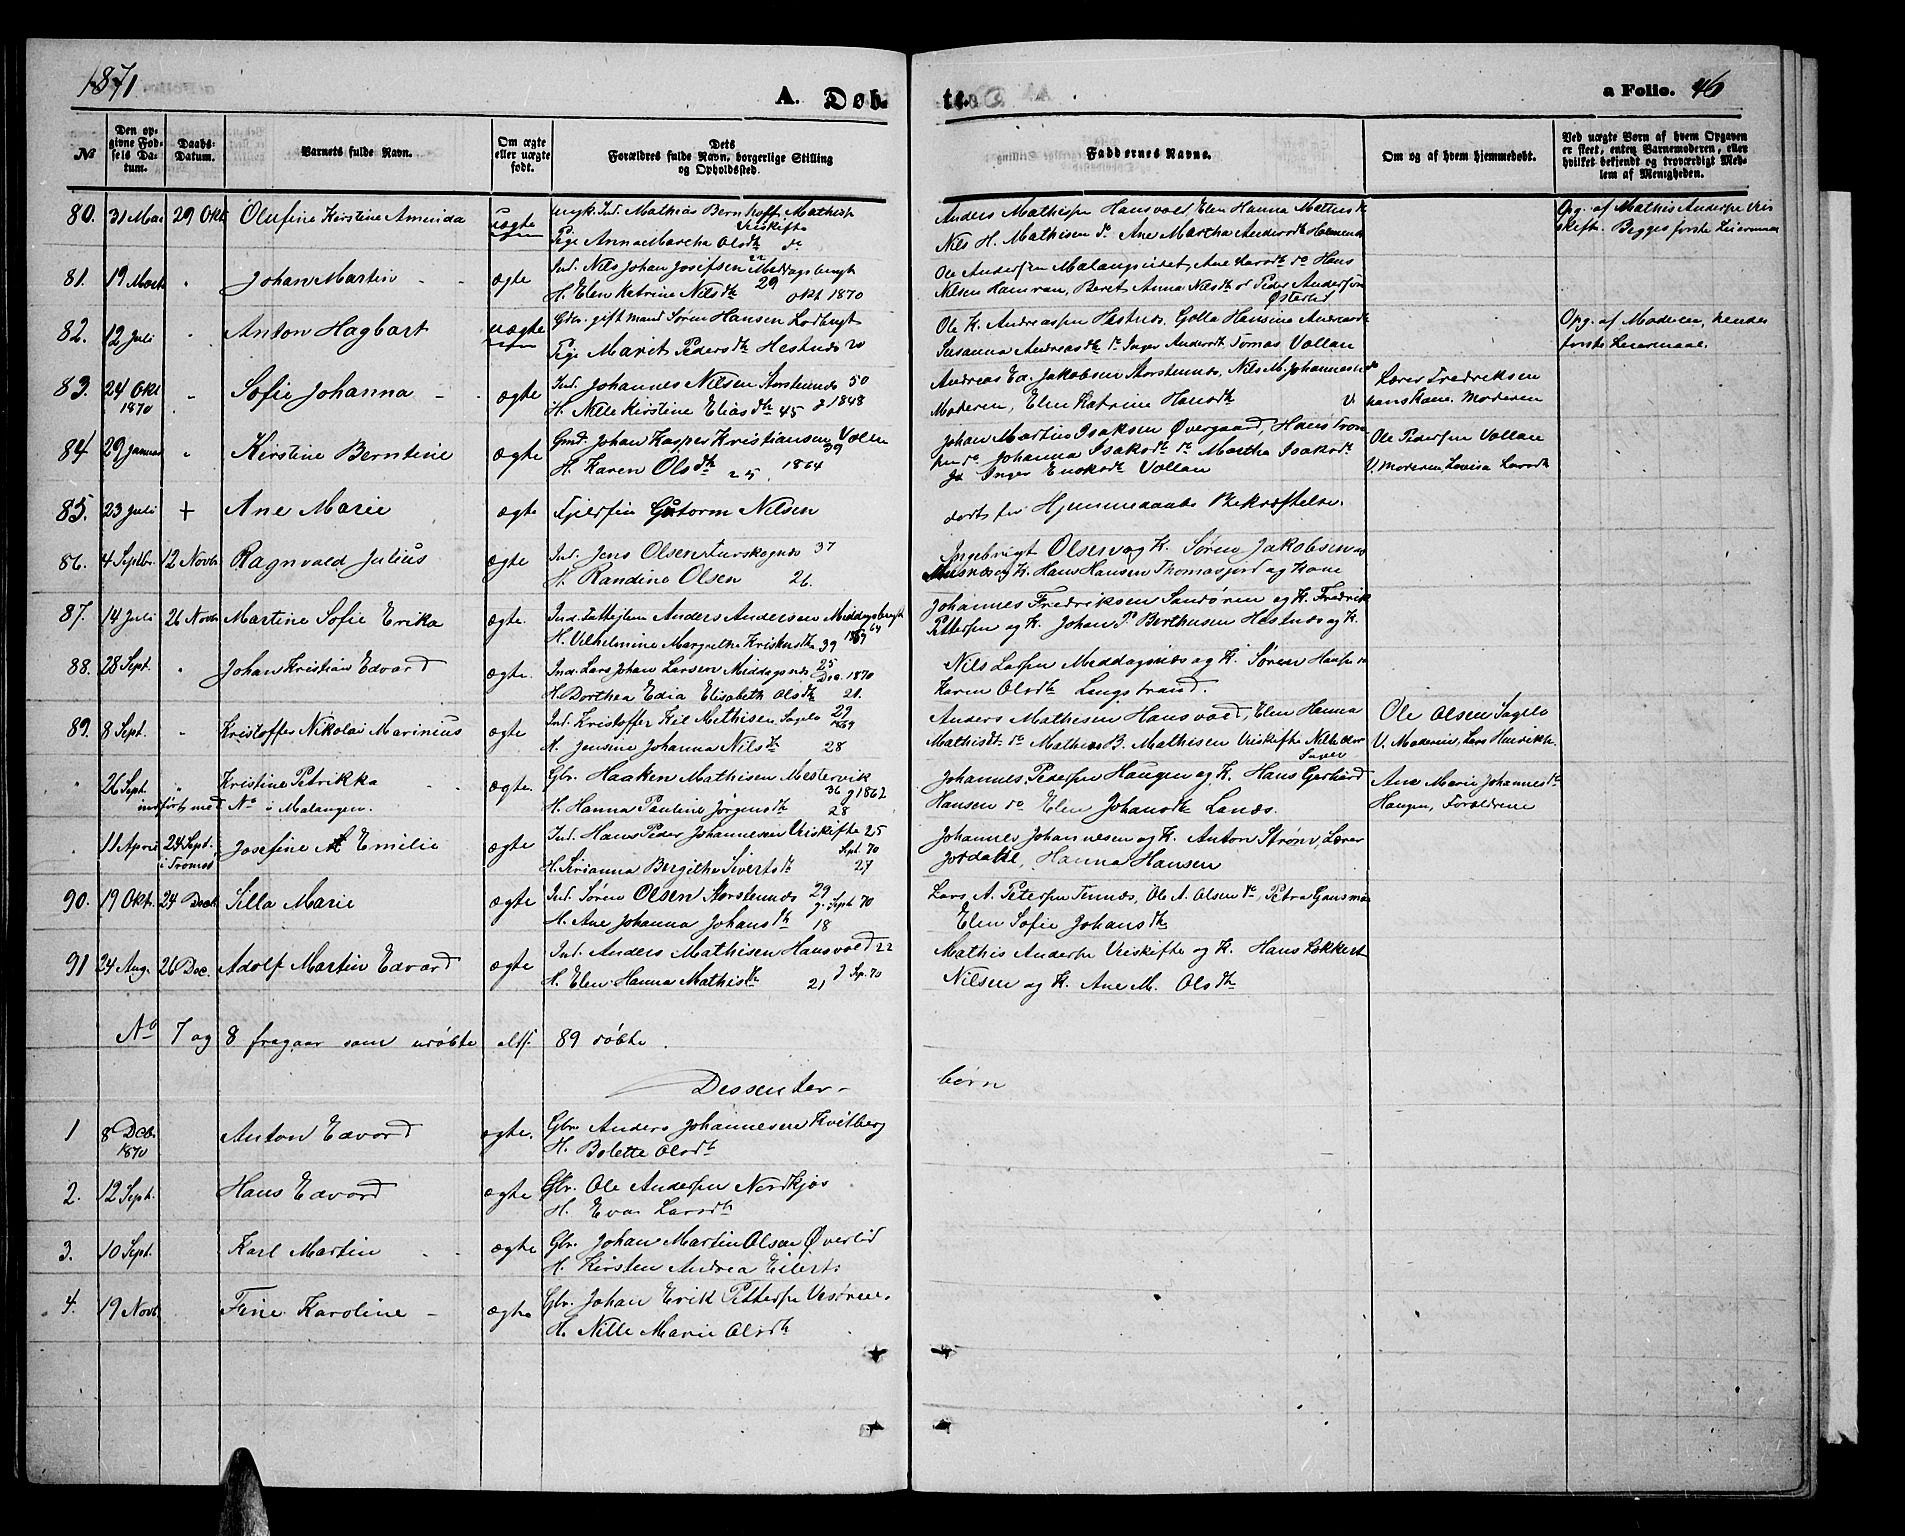 1871.
A. Døb-
te.
a Folio. 46
No
Den op-
givne Fød-
sels Da-
tum.
Daabs-
Datum.
Barnets fulde Navn.
Om ægte
eller uægte
født.
Dets
Forældres fulde Navn, borgerlige Stilling
og Opholdssted.
Faddernes Navne.
Om og af hvem hjemmedøbt.
Ved uægte Børn af hvem Opgaven
er skeet, enten Barnemoderen, eller
hvilket bekjendt og troværdigt Med-
lem af Menigheden.
80. 31 Mai 29 Okt Olufine Kirstine Aminda uægte Ungk. Ind. Mathias Bernhoff Mathisen
Vriskifte
Pige Anna Martha Olsdtr do
Anders Mathisen Hansvold, Elen Hanna Mathisdtr
Nils H. Mathisen do Ane Martha Andersdtr
Opg. af Mathis Andersen Vri
skifte. Begges første Leiermaal
81. 19 Marts " Johan Martin ægte Ind. Nils Johan Josefsen Meddagsbergt
H. Elen Katrine Nilsdtr 29 okt 1870
Ole Andersen Malangseidet, Ane Larsdtr do Hans
Nilsen Hamran, Beret Anna Nilsdtr Peder Andersen
Østerlid
82. 12 Juli " Anton Hagbart uægte Gbr. gift mand Søren Hansen Lodbergt
Pige Marit Pedersdtr Hestnæs 20
Ole K. Andreassen Hestnæs, Golla Hansine Andreasdtr
Susanna Andreasdtr do Inger Andersdtr Tomas Vollan
Opg. af Moderen, hendes
første Leiermaal.
83. 24 Okt
1870 " Sofie Johanna ægte Ind. Johannes Nilsen Storstennæs 50
H. Nille Kirstine Eliasdtr 45 g 1848
Andreas Ed. Jakobsen Storstennæs, Nils M. Johannesen do
Moderen, Elen Katrine Hansdtr
Lærer Fredriksen
V. hans Kone. Moderen
84 29 Januar " Kirstine Berntine ægte Gmd. Johan Kasper Kristiansen Vollan
39
H. Karen Olsdtr 25. 1864
Johan Martin Isaksen Øvergaard, Hans Trom
do Johanna Isaksdtr do Martha Isaksdtr
Inger Enoksdtr Vollan
Ole Pedersen Vollan
V. Moderen Lovisa Larsdtr
85. 23 Juli + Ane Marie ægte Fjeldfin Guttorm Nilsen
dødt før Hjemmedaabs Bekræftelse.
86. 4 Septbr. 12 Novb. Ragnvald Julius ægte Ind. Jens Olsen Furskognæs 37
H. Randine Olsen 26.
Ingebrigt Olsen og K. Søren Jakobsen
og K. Hans Hansen Thomasjord og Kone
87. 14 Juli 26 Novb Martine Sofie Erika ægte. Ind. Enkem. Anders Andersen Middagsbergt
64
H. Vilhelmine Margrethe Kristensdtr 39 1869
Johannes Fredriksen Sandøren og K. Fredrik
Pettersen og K. Johan P. Berthusen Hestnæs og K.
88. 28 Sept. " Johan Kristian Edvard ægte. Ind. Lars Johan Larsen Middagsnæs 25
Dec. 1870
H. Dorthea Edia Elisabeth Olsdtr 21.
Nils Larsen Meddagsnæs og K. Søren Hansen
Karen Olsdtr Langstrand.
89. 8 Sept. " Kristoffer Nikolai Marinius ægte Ind. Kristoffer Kil Mathisen Sagelv 29
1869
H. Jensine Johanna Nilsdtr 28
Anders Mathisen Hansvold, Elen Hanna
Mathisdtr do Mathias B. Mathisen Vriskifte
Ole Olsen Sagelv
V. Moderen, Lars Henrikk.
" 26 Sept. " Kristine Petrikka ægte. Gbr. Haaken Mathisen Mestervik
indført med No i Malangen. 36 g 1862
H. Hanna Pauline Jørgensdtr 28
Johannes Pedersen Haugen og K. Hans Gerhard
Hansen do Elen Johansdtr Lanæs.
Ane Marie Johannesdtr
Haugen, Forældrene
" 11 April 24 Sept.
i Tromsø Josefine Emilie ægte Ind. Hans Peder Johannesen Vriskifte 25
Sept. 70
H. Sirianna Bergithe Sivertsdtr 27
Johannes Johannesen og K. Anton Strøm, Lærer
Jordahl, Hanna Hansen
90. 19 Okt. 24 Decb Silla Marie ægte Ind. Søren Olsen Storstennæs 29
g. Sept 70
H. Ane Johanna Johansdtr 18
Lars A. Petersen Tennæs, Ole A. Olsen do, Petra Gausnæs
Elen Sofie Johansdtr
91 24 Aug. 26 Dec. Adolf Martin Edvard ægte Ind. Anders Mathisen Hansvold 22
H. Elen Hanna Mathisdtr 21 g Sep. 70
Mathis Andersen Vriskifte og K. Hans Løkkert
Nilsen og K. Ane M. Olsdtr
No 7 og 8 fragaar som udøbte altsaa 89 døbte.
Dissenter-
børn
1 8 Dec.
1870 Anton Edvard ægte. Gbr. Anders Johannesen Kvitberg
H. Bolette Olsdtr
2. 12 Sept. Hans Edvard ægte Gbr. Ole Andersen Nordkjos
H. Eva Larsdtr
3. 10 Sept. Karl Martin ægte Gbr. Johan Martin Olsen Øverlid
H. Kirsten Andrea Eilerts
4. 19 Novb. Fine Karoline ægte Gbr. Johan Erik Pettersen Vesøren
H. Nille Marie Olsdtr